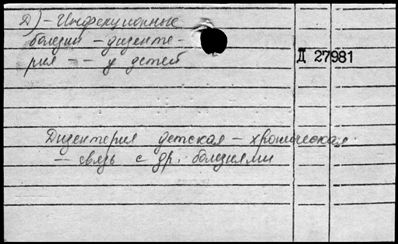 Д) - Инфекционные
болезни - дизенте-
рия - - у детей
Д 27981
Дизентерия детская - хроническая.
- связь с др. болезнями